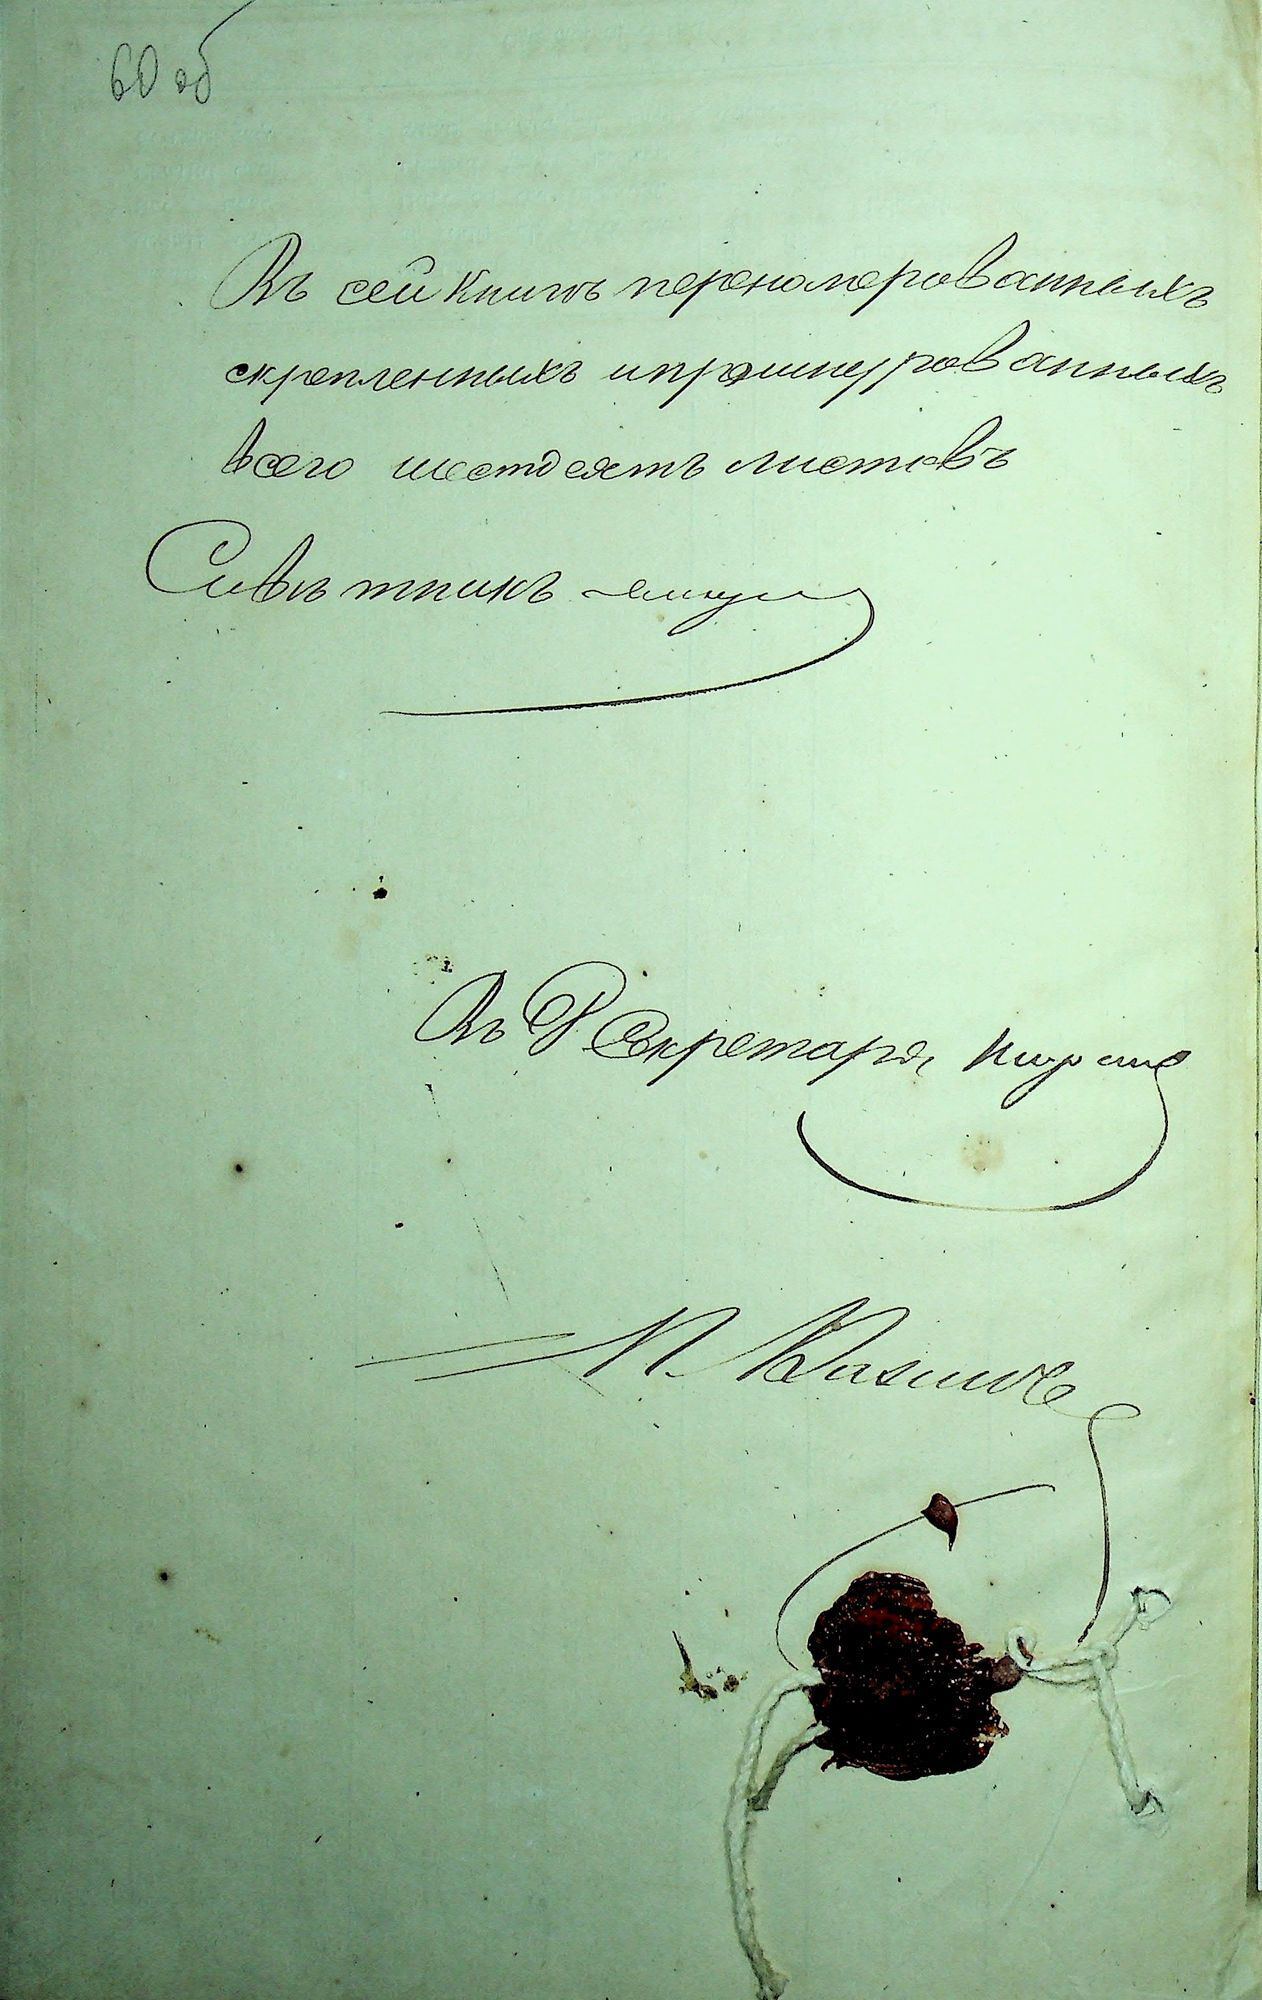 60 об
Въ сей книгѣ перенумерованныхъ
скрепленныхъ и прошнурованныхъ
всего шестдесятъ листовъ
Совѣтникъ
Въ Д. Секретаря